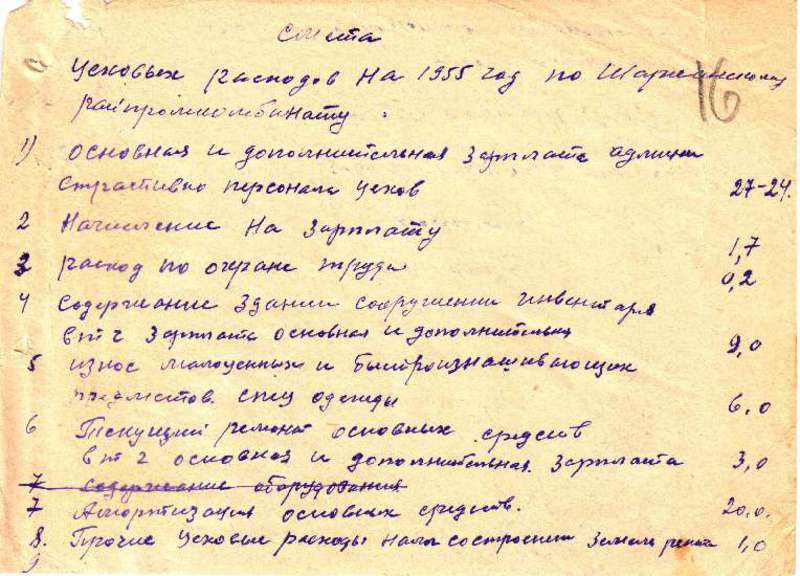 Смета
Цеховых расходов на 1955 год по Шарканскому
райпромкомбинату.
16
1) основная и дополнительная зарплата админи
стративно персонала цехов 27-24.
2 Начисление на зарплату 1,7
3 расход по охране труда 0,2
4 содержание здании сооружении инвентаря
в т ч зарплата основная и дополнительная 9,0
5 износ малоценных и быстроизнашивающих
предметов. спец одежды 6,0
6 Текущий ремонт основных средств
в т ч основная и дополнительная зарплата 3,0
7 содержание оборудования
7 Амортизация основных средств. 20.0.
8. Прочие цеховые расходы строении 1,0
9